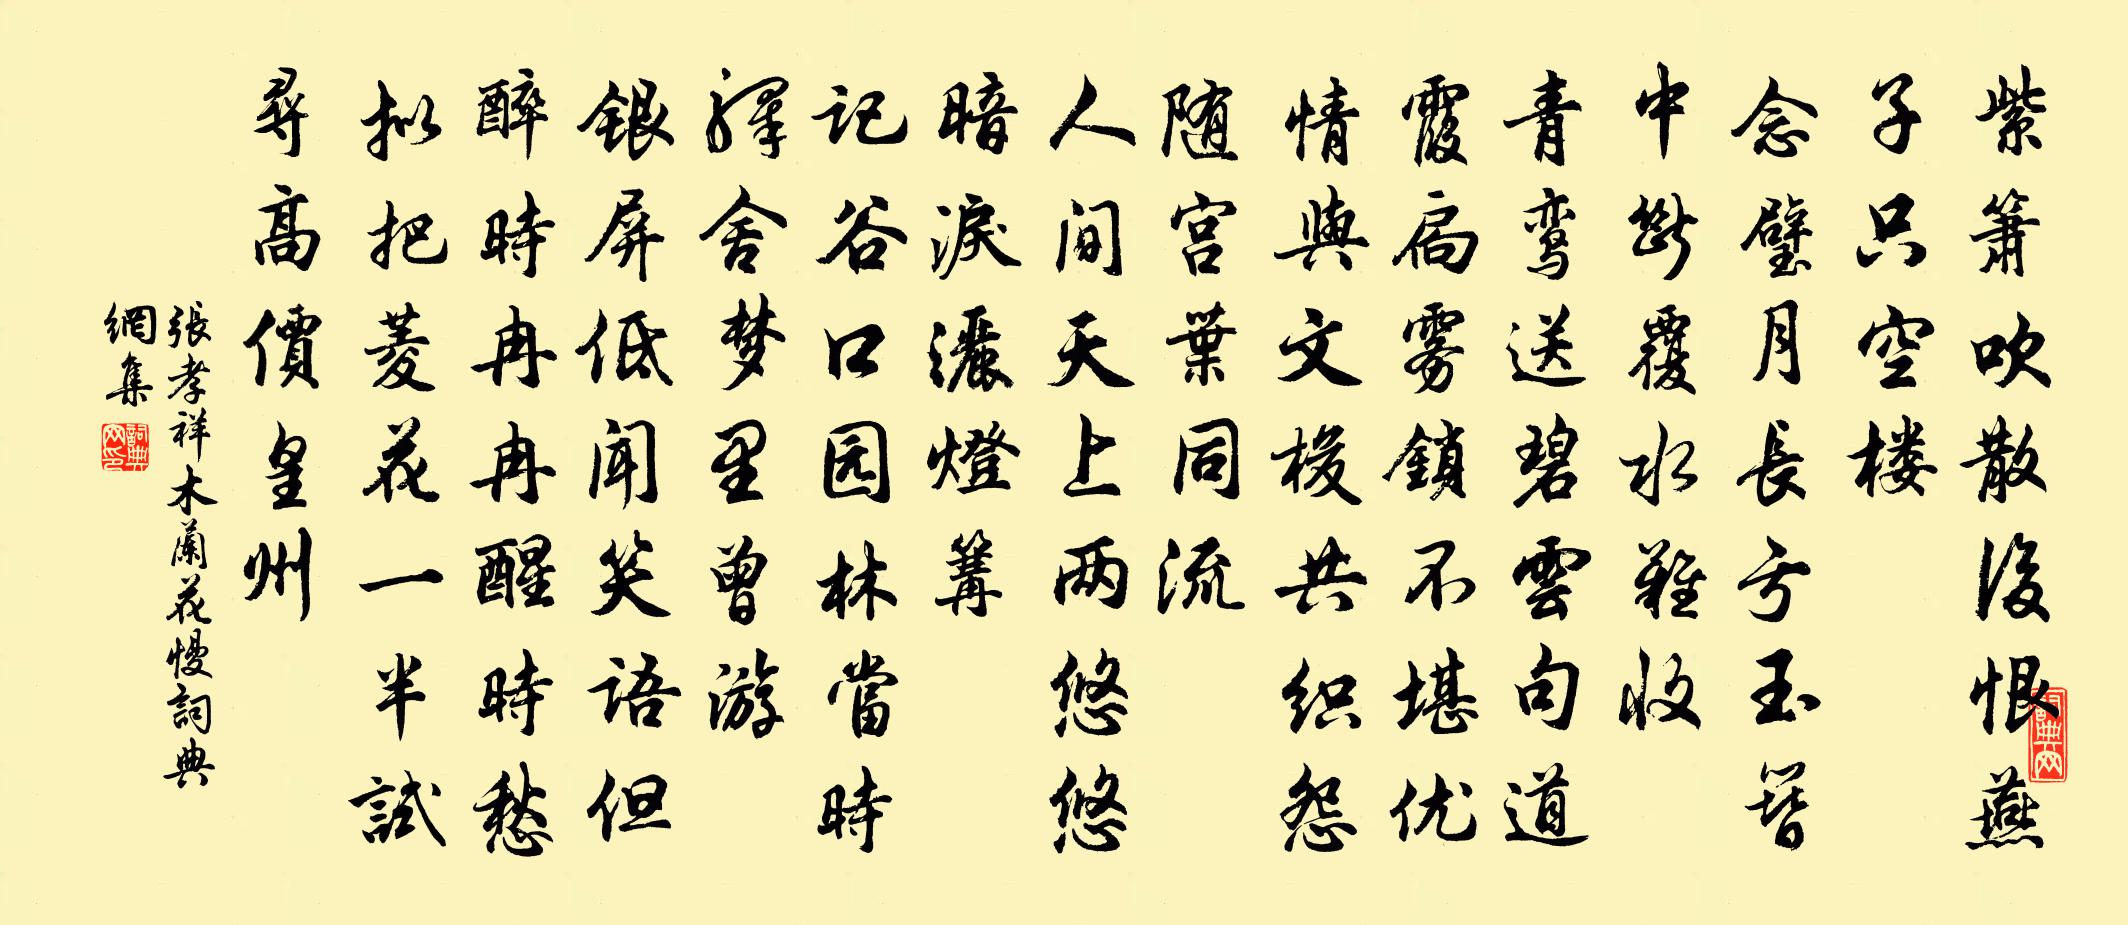 紫簫吹散後恨燕
子只空楼
念璧月長亏玉簪
中斷覆水難收
青鸾送碧雲句道
霞扃雾鎖不堪优
情與文梭共织怨
随宫葉同流
人间天上两悠悠
暗淚灑燈篝
记谷口园林當時
驛舍梦里曾游
銀屏低闻笑语但
醉時冉冉醒時愁
拟把菱花一半試
尋高價皇州
張孝祥木蘭花慢詞典
網集